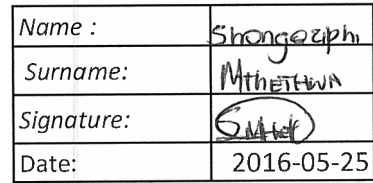 Name : Shongeziphi
Surname: Mthethwa
Signature: SMthet
Date: 2016-05-25